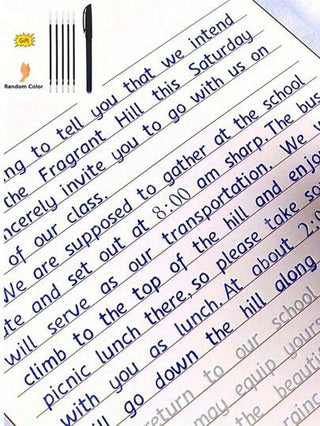 Gift
Random Color
ng to tell you that we intend
the Fragrant Hill this Saturday
ncerely invite you to go with us on
of our class.
We are supposed to gather at the school
te and set out at 8:00 am sharp. The bus
will serve as our transportation. We w
climb to the top of the hill and enjo
picnic lunch there, so please take so
with you as lunch. At about 2:0
ll go down the hill along
return to our school
may equip yours
the beauti
rainc